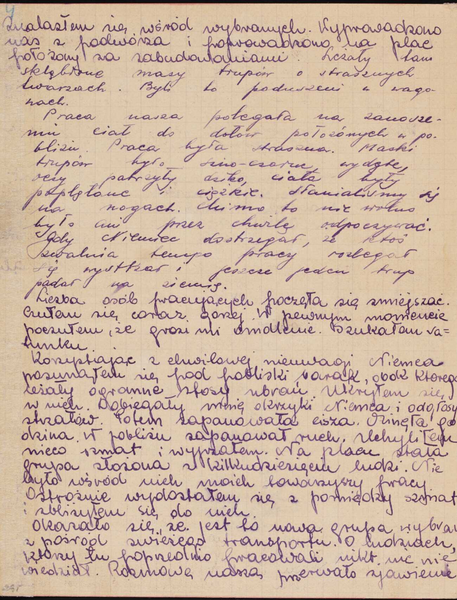 znalazłem się wśród wybranych. Wyprowadzono
nas z podwórza i poprowadzono na plac
położony za zabudowaniami. Leżały tam
skłębione masy trupów o strasznych
twarzach. Byli to poduszeni w wago-
nach.
Praca nasza polegała na zanosze-
niu ciał do dołów położonych w po-
bliżu. Praca była straszna. Maski
trupów były sino-czarne, wydęte,
oczy patrzyły dziko, ciała były
poplątane i ciężkie. Słanialiśmy się
na nogach. Mimo to nie wolno
było ani przez chwilę odpoczywać.
Gdy Niemiec dostrzegał, że ktoś
zwalnia tempo pracy rozlegał
się wystrzał i jeszcze jeden trup
padał na ziemię.
Liczba osób pracujących poczęła się zmniejszać.
Czułem się coraz gorzej. W pewnym momencie
poczułem, że grozi mi omdlenie. Szukałem ra-
tunku.
Korzystając z chwilowej nieuwagi Niemca
posunąłem się pod pobliski barak, obok którego
leżały ogromne stosy ubrań. Ukryłem się
w nich. Dobiegały mnie okrzyki Niemca i odgłosy
strzałów. Potem zapanowała cisza. Minęła go-
dzina. W pobliżu zapanował ruch. Uchyliłem
nieco szmat i wyjrzałem. Na placu stała
grupa złożona z kilkudziesięciu ludzi. Nie
było wśród nich moich towarzyszy pracy.
Ostrożnie wydostałem się z pomiędzy szmat
i zbliżyłem się do nich.
Okazało się, że jest to nowa grupa wybrana
z pośród świeżego transportu. O ludziach,
którzy tu poprzednio pracowali nikt nic nie
wiedział. Rozmowę naszą przerwało zjawienie